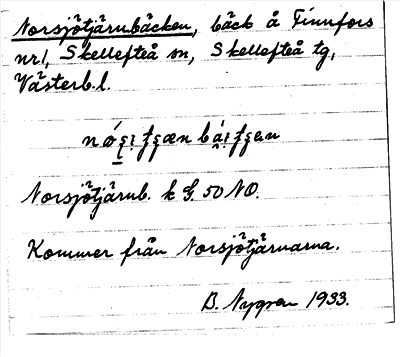 Norsjötjärnbäcken, bäck å Finnfors
nr1, Skellefteå sn, Skellefteå tg,
Västerb.l.
Norsjötjärnb. k G. 50 NO.
Kommer från Norsjötjärnarna.
B. Nygren 1933.